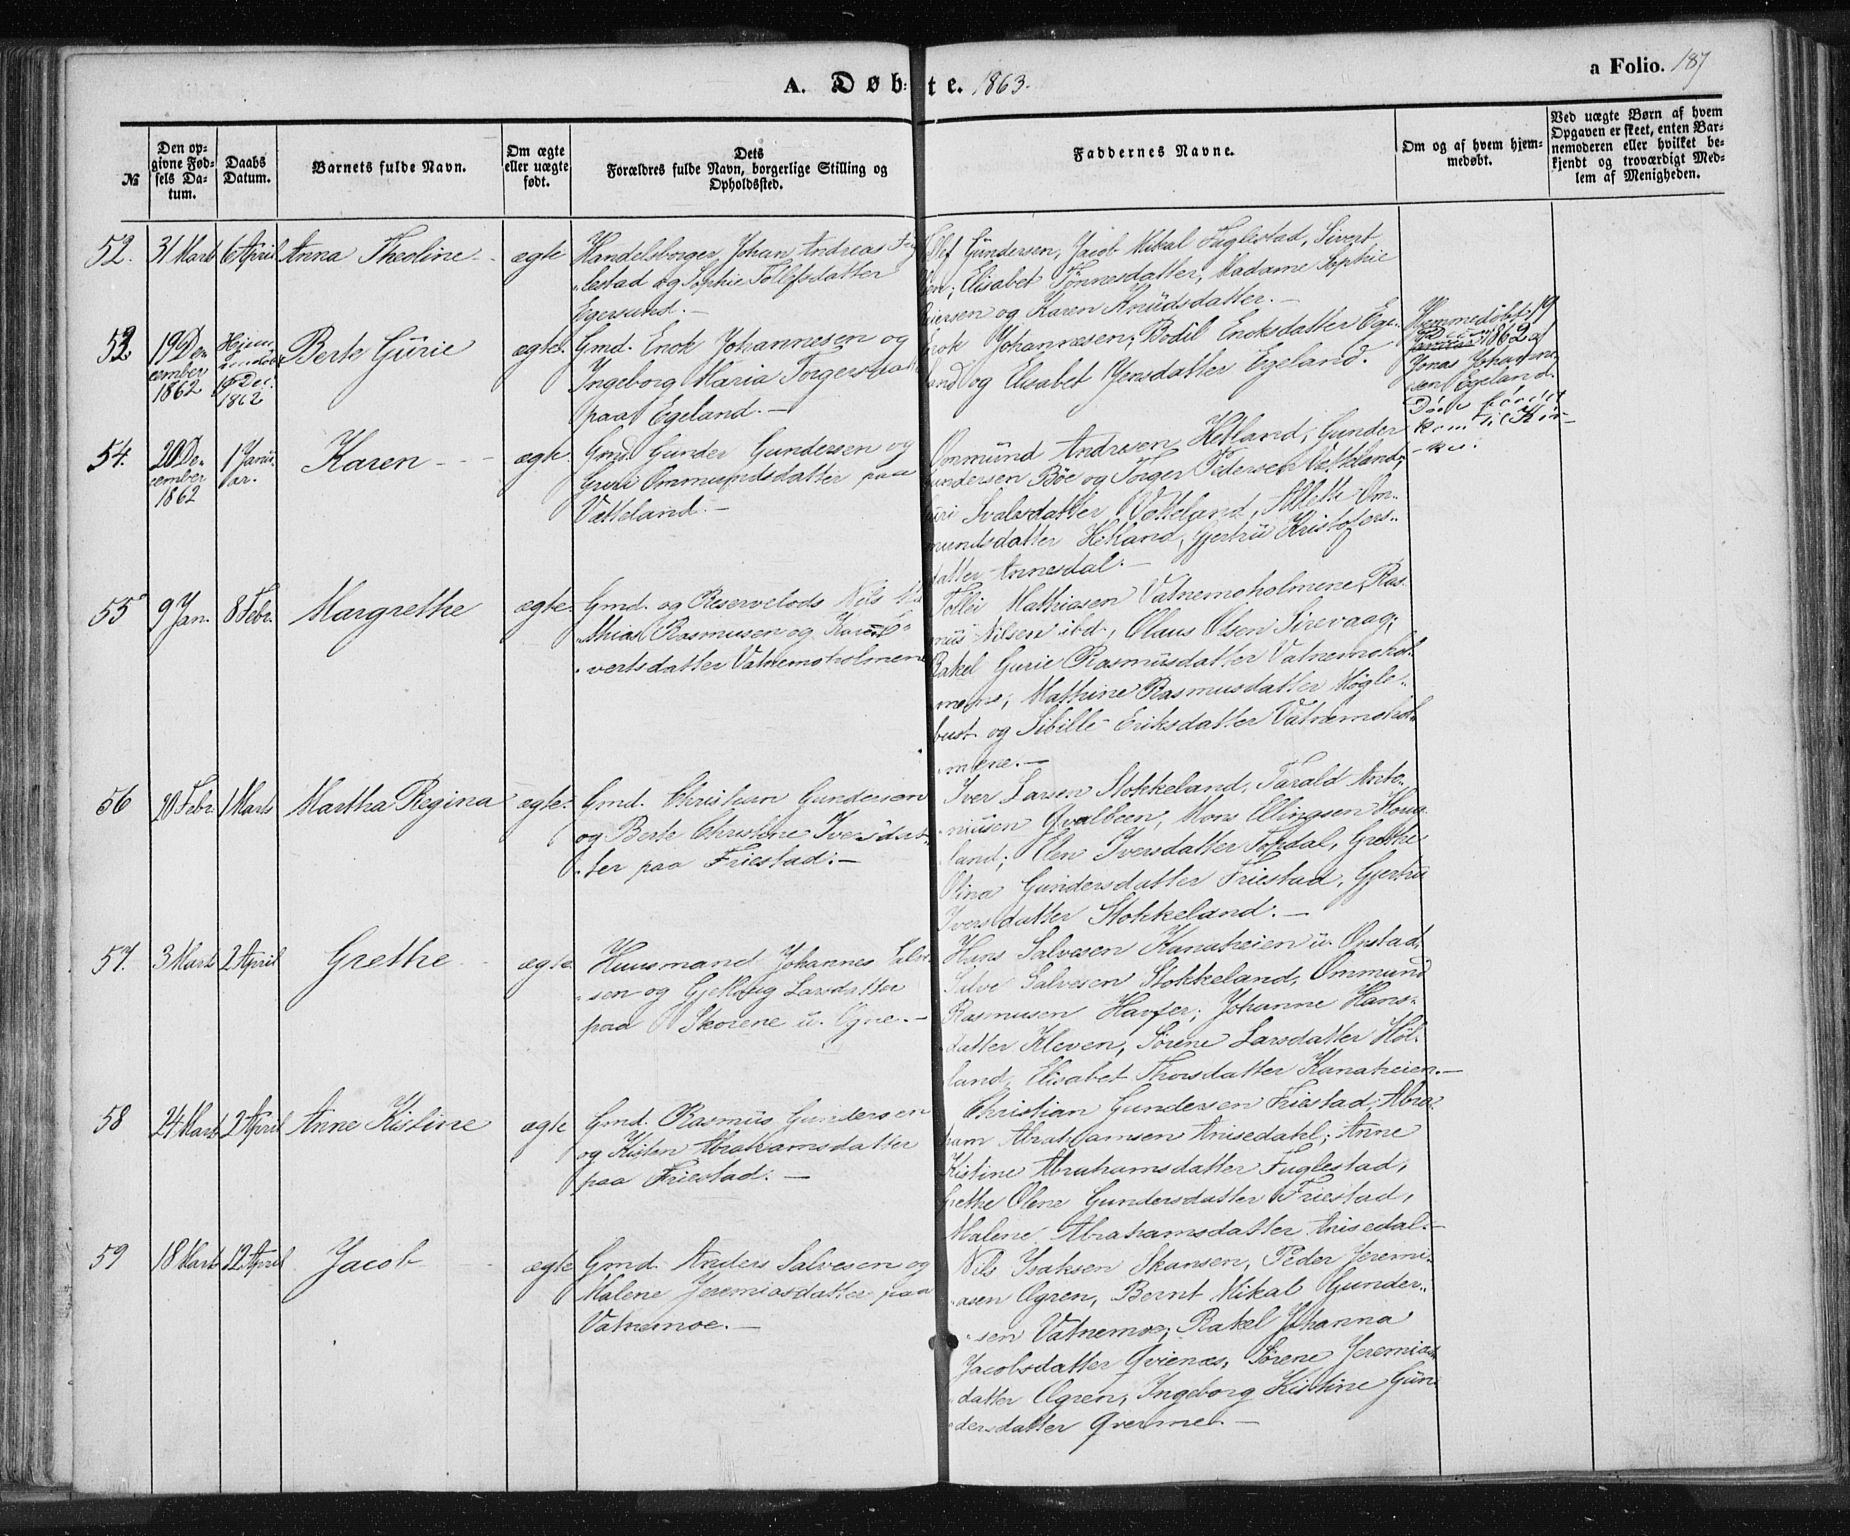 A. Døbte. 1863.
a Folio. 187
№
Den op-
givne Fød-
sels Da-
tum.
Daabs
Datum.
Barnets fulde Navn.
Om ægte
eller uægte
født.
Dets
Forældres fulde Navn, borgerlige Stilling og
Opholdssted.
Faddernes Navne.
Om og af hvem hjem-
medøbt.
Ved uægte Børn af hvem
Opgaven er skeet, enten Bar-
nemoderen eller hvilket be-
kjendt og troværdigt Med-
lem af Menigheden.
52. 31 Marts 6 April Anna Theoline ægte
Handelsborger Johan Andreas Fug
lestad og Sophie Tollefsdatter
Egersund.
Gundersen, Jacob Mikal Fuglestad, Sivert
Elisabet Tønnesdatter, Madame Sophie
og Karen Knudsdatter.
53. 19 De
cember
1862
Hjem
19 Dec.
1862
Berte Gurie ægte
Gmd. Enok Johannesen og
Ingeborg Maria Torgersdatter
paa Egeland.
Enok Johannesen, Bodil Enoksdatter Ege
land og Elisabet Jensdatter Egeland.
Hjemmedøbt 19
1862 af
Jonas Johanne
sen Egeland.
Døde førend
kom til Kir
ke.
54. 20 De
cember
1862
1 Janu
ar.
Karen ægte
Gmd. Gunder Gundersen og
Guri Ommundsdatter paa
Vatteland.
Ommund Andresen Hetland, Gunder
Gundersen Bøe og Torger Pedersen Vatteland;
Guri Svalesdatter Vatteland, Om
mundsdatter Hetland, Gjertru Kristofers
datter Annesdal.
55 9 Jan. 8 Febr. Margrethe ægte
Gmd. og Reservelods Nils Ma
thias Rasmusen og Karen
vertsdatter Vatnemoholmene
Tollei Mathiasen Vatnemoholmene, Ras
mus Nilsen ibd., Olaus Olsen Sirevaag;
Rakel Gurie Rasmusdatter Vatnemohol
mene; Mathine Rasmusdatter Høgle
bust og Sibille Eriksdatter Vatnemohol
mene.
56 20 Febr. 1 Marts Martha Regina ægte
Gmd. Christian Gundersen
og Berte Christine Iversdat
ter paa Friestad.
Iver Larsen Stokkeland, Tarald Anto
niusen Qvalbeen, Mons Ellingsen Houg
land; Elen Iversdatter Topdal, Grethe
Olina Gundersdatter Friestad, Gjertru
Iversdatter Stokkeland.
57. 3 Marts 2 April Grethe ægte
Huusmand Johannes Salve
sen og Larsdatter
paa Skorene u. Ogne.
Hans Salvesen Kanaheien u. Opstad,
Salve Salvesen Stokkeland, Ommund
Rasmusen Havfer; Johanne Hans
datter Kleven, Sørene Larsdatter Høl
land, Elisabet Thorsdatter Kanaheien.
58 24 Marts 2 April Anne Kistine ægte
Gmd. Rasmus Gundersen
og Kisten Abrahamsdatter
paa Friestad.
Christian Gundersen Friestad, Abra
ham Abrahamsen Anisedahl; Anne
Kistine Abrahamsdatter Fuglestad,
Grethe Olene Gundersdatter Friestad,
Malene Abrahamsdatter Anisedal.
59 18 Marts 12 April Jacob ægte
Gmd. Anders Salvesen og
Malene Jeremiasdatter paa
Vatnemoe.
Nils Isaksen Skansen, Peder Jeremi
asen Ogren, Bernt Mikal Gunder
sen Vatnemoe; Rakel Johanna
Jacobsdatter Qvienæs, Sørene Jeremias
datter Ogren, Ingeborg Kistine Gun
dersdatter Qverme.